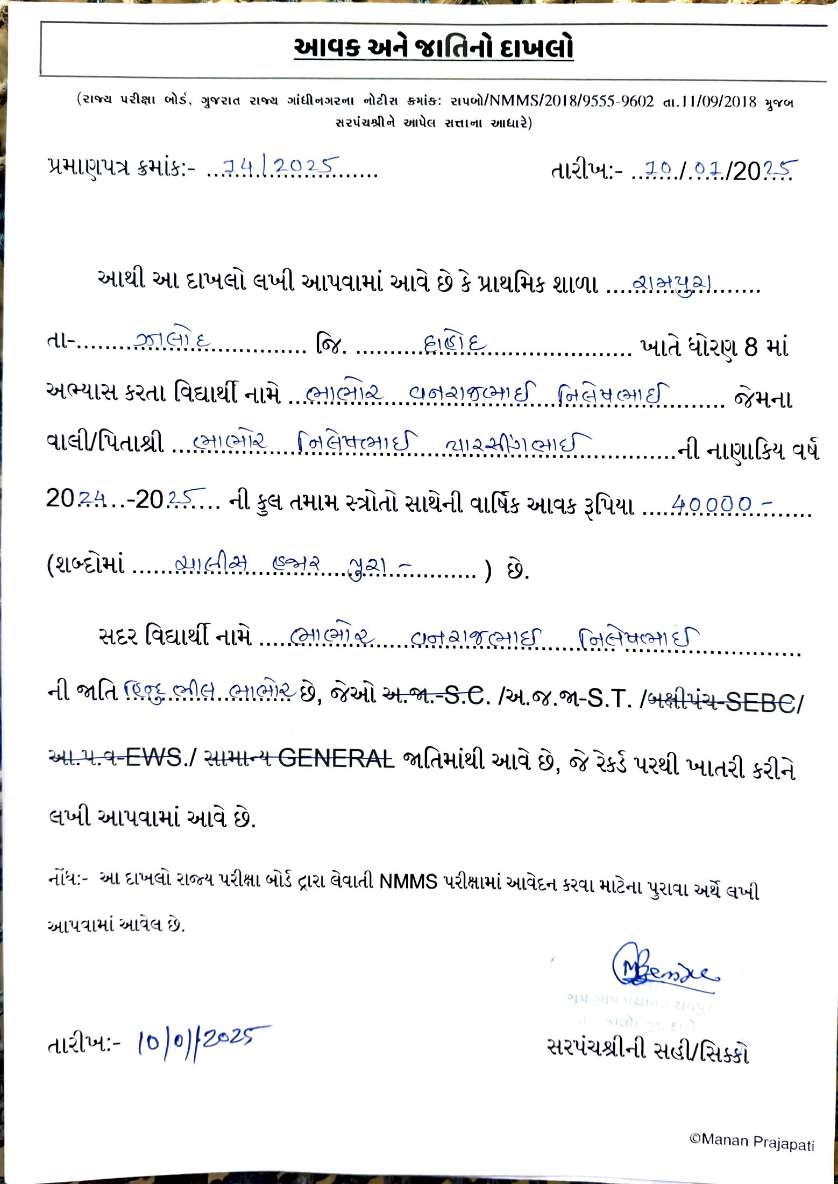 આવક અને જાતિનો દાખલો
(રાજ્ય પરીક્ષા બોર્ડ, ગુજરાત રાજ્ય ગાંધીનગરના નોટીસ ક્રમાંક: રાપબો/NMMS/2018/9555-9602 તા.11/09/2018 મુજબ
સરપંચશ્રીને આપેલ સત્તાના આધારે)
પ્રમાણપત્ર ક્રમાંક:- ...14/2025...... તારીખ:- ..10../.01./2025
આથી આ દાખલો લખી આપવામાં આવે છે કે પ્રાથમિક શાળા ....રામપુરા.......
તા-.........ઝાલોદ............ જિ. .........દાહોદ................. ખાતે ધોરણ 8 માં
અભ્યાસ કરતા વિદ્યાર્થી નામે ..ભાભોર વનરાજભાઈ નિલેષભાઈ....... જેમના
વાલી/પિતાશ્રી ...ભાભોર નિલેષભાઈ ચારસીંગભાઈ..........ની નાણાકિય વર્ષ
2024..-2025.. ની કુલ તમામ સ્ત્રોતો સાથેની વાર્ષિક આવક રૂપિયા ....40000 -....
(શબ્દોમાં ......ચાલીસ હજાર પુરા -.......... ) છે.
સદર વિદ્યાર્થી નામે ....ભાભોર વનરાજભાઈ નિલેષભાઈ..........
ની જાતિ હિન્દુ ભીલ ભાભોર છે, જેઓ અ.જા.-S.C. /અ.જ.જા-S.T. /બક્ષીપંચ-SEBC/
આ.પ.વ-EWS./ સામાન્ય GENERAL જાતિમાંથી આવે છે, જે રેકર્ડ પરથી ખાતરી કરીને
લખી આપવામાં આવે છે.
નોંધ:- આ દાખલો રાજ્ય પરીક્ષા બોર્ડ દ્વારા લેવાતી NMMS પરીક્ષામાં આવેદન કરવા માટેના પુરાવા અર્થે લખી
આપવામાં આવેલ છે.
તારીખ:- 10/01/2025
સરપંચશ્રીની સહી/સિક્કો
©Manan Prajapati